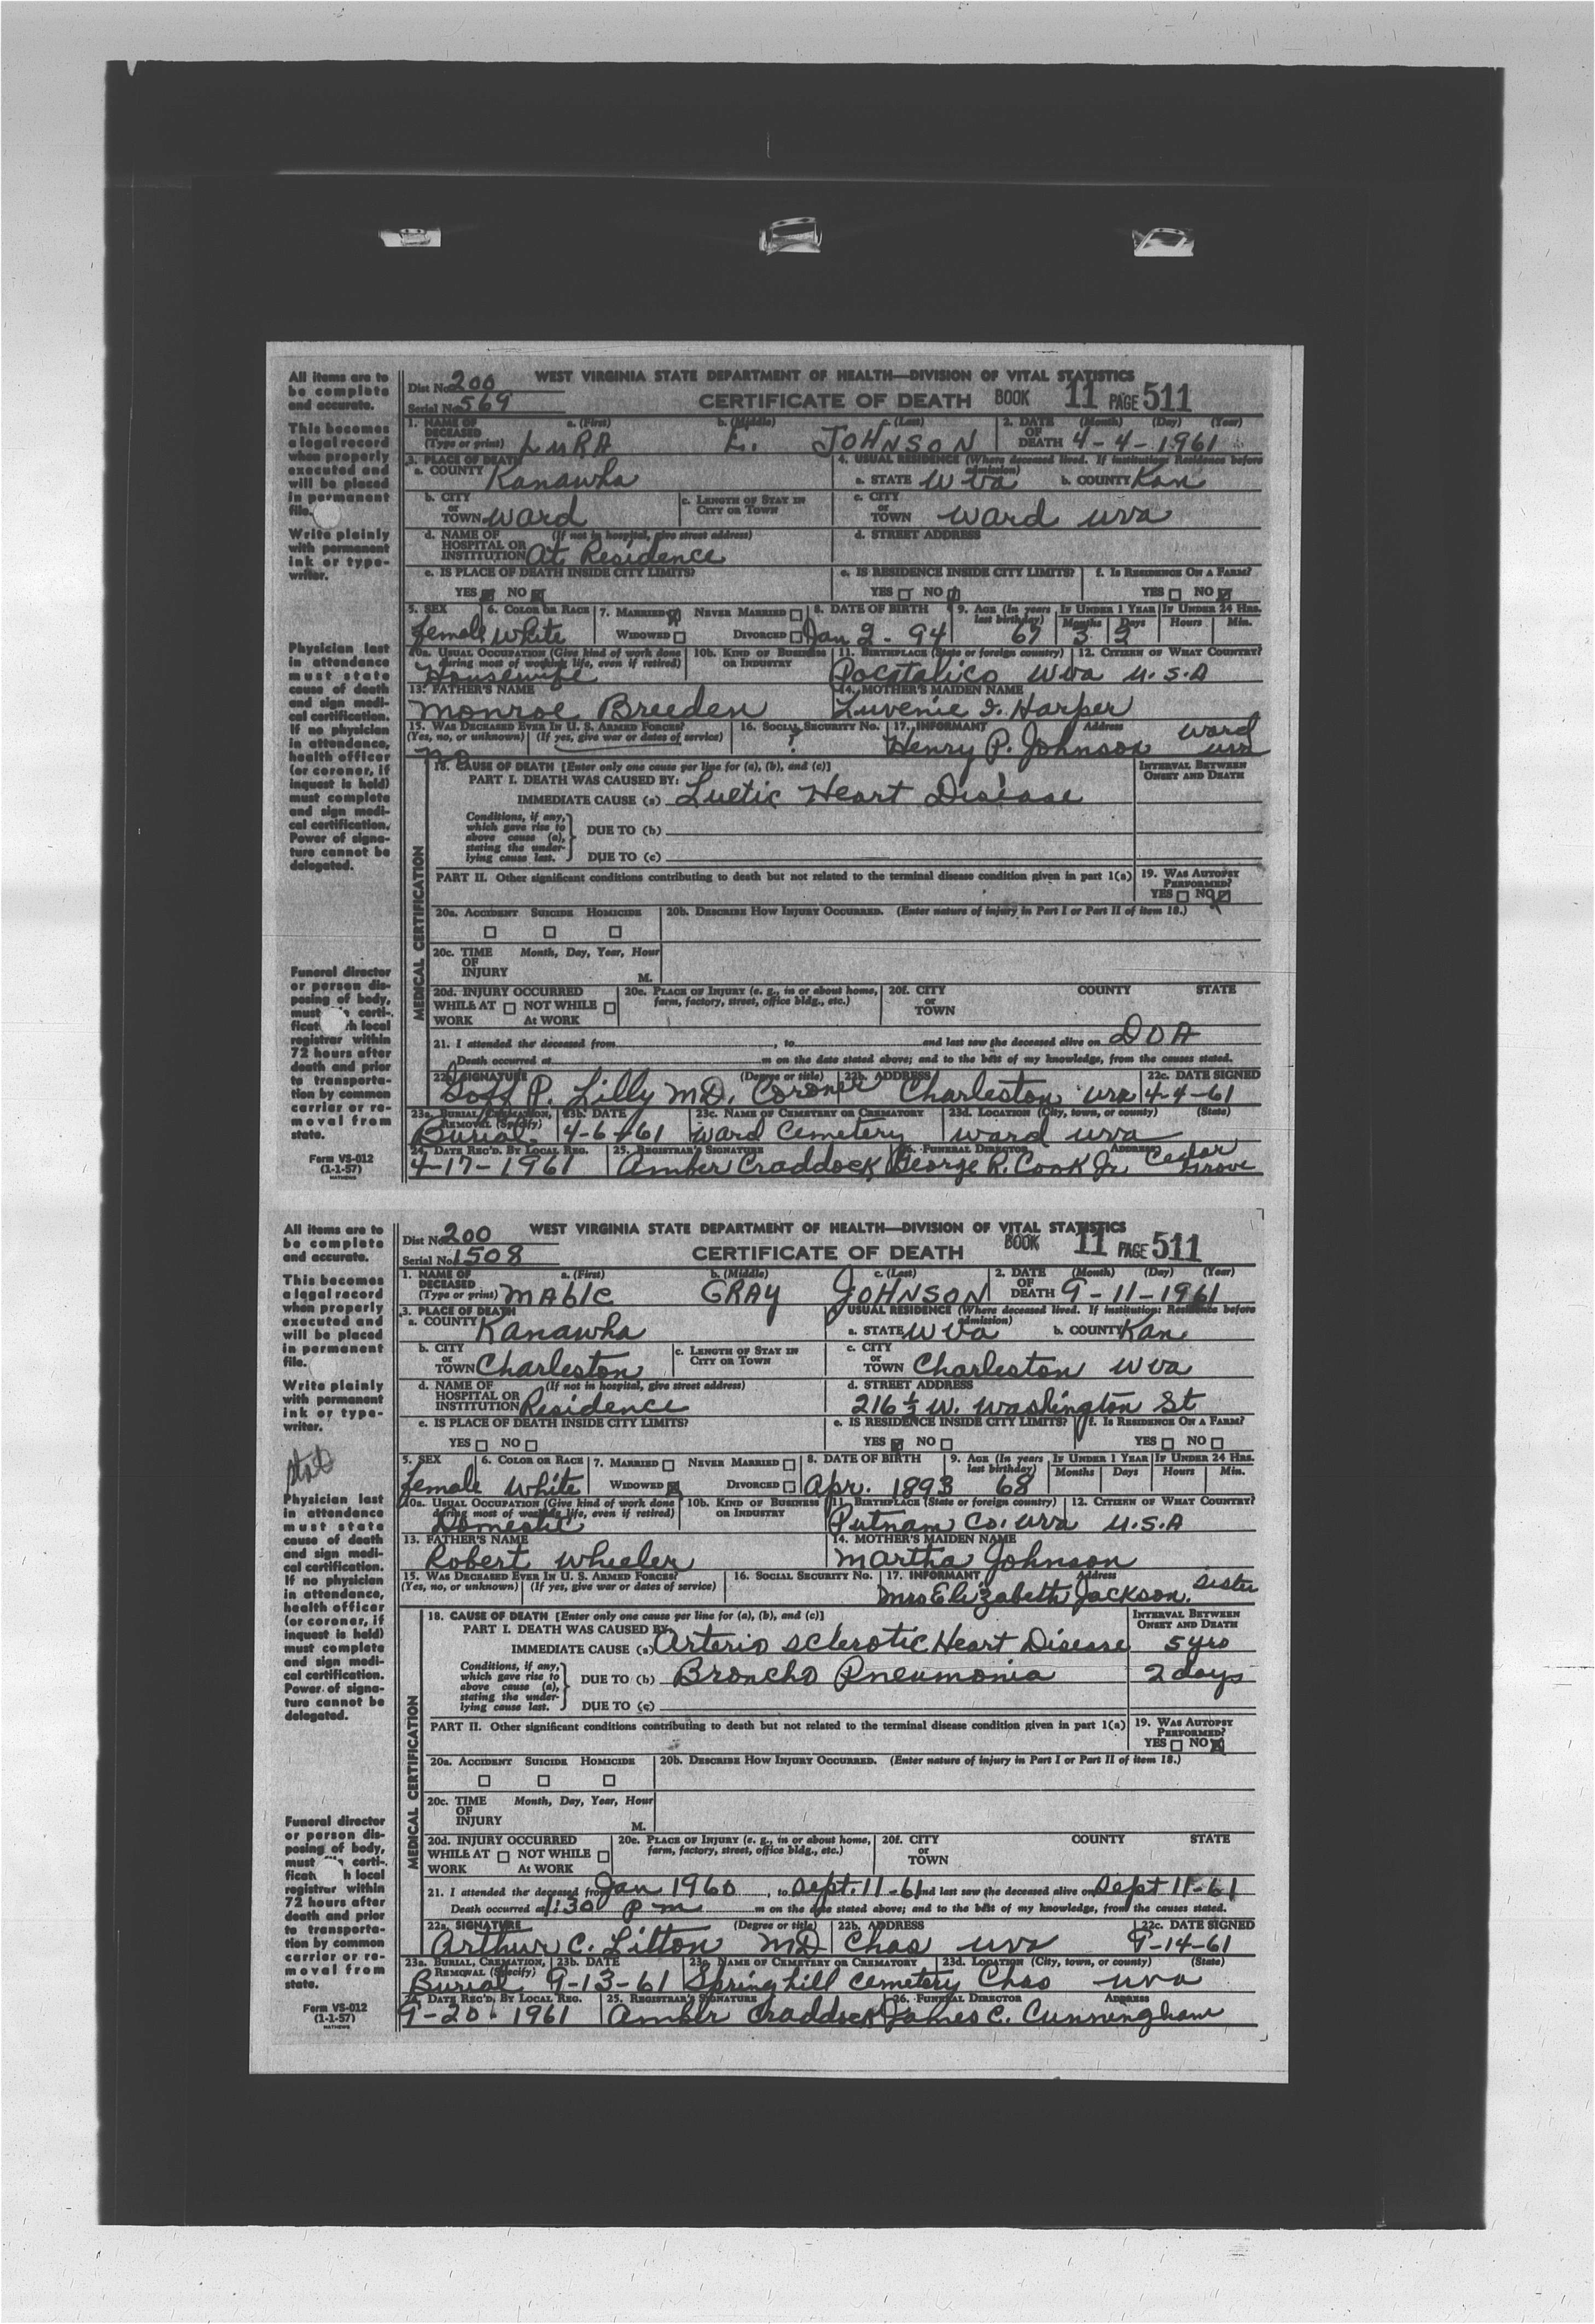 All items are to be complete and accurate.
This becomes a legal record when properly executed and will be placed in permanent file.
Write plainly with permanent ink or typewriter.
Physician last in attendance must state cause of death and sign medical certification. If no physician in attendance, health officer (or coroner, if inquest is held) must complete and sign medical certification. Power of signature cannot be delegated.
Funeral director or person disposing of body, must certificate local registrar within 72 hours after death and prior to transportation by common carrier or removal from state.
Form VS-012
(1-1-57)
MATHEWS
Dist No. 200 WEST VIRGINIA STATE DEPARTMENT OF HEALTH—DIVISION OF VITAL STATISTICS
Serial No. 569 CERTIFICATE OF DEATH BOOK 11 PAGE 511
1. NAME OF DECEASED (Type or print) a. (First) LURA b. (Middle) L. c. (Last) JOHNSON 2. DATE OF DEATH (Month) (Day) (Year) 4-4-1961
3. PLACE OF DEATH a. COUNTY Kanawha 4. USUAL RESIDENCE (Where deceased lived. If institution: Residence before admission) a. STATE W Va b. COUNTY Kan
b. CITY or TOWN Ward c. LENGTH OF STAY IN CITY OR TOWN c. CITY or TOWN Ward WVa
d. NAME OF HOSPITAL OR INSTITUTION (If not in hospital, give street address) At Residence d. STREET ADDRESS
e. IS PLACE OF DEATH INSIDE CITY LIMITS? YES NO e. IS RESIDENCE INSIDE CITY LIMITS? YES NO f. IS RESIDENCE ON A FARM? YES NO
5. SEX female 6. COLOR OR RACE White 7. MARRIED NEVER MARRIED WIDOWED DIVORCED 8. DATE OF BIRTH Jan 2-94 9. AGE (In years last birthday) 67 IF UNDER 1 YEAR Months 3 Days 2 IF UNDER 24 HRS. Hours Min.
10a. USUAL OCCUPATION (Give kind of work done during most of working life, even if retired) Housewife 10b. KIND OF BUSINESS OR INDUSTRY 11. BIRTHPLACE (State or foreign country) Pocatalico WVa 12. CITIZEN OF WHAT COUNTRY? U.S.A
13. FATHER'S NAME Monroe Breeden 14. MOTHER'S MAIDEN NAME Luvenie I. Harper
15. WAS DECEASED EVER IN U. S. ARMED FORCES? (Yes, no, or unknown) (If yes, give war or dates of service) no 16. SOCIAL SECURITY NO. ? 17. INFORMANT Address Henry P. Johnson Ward WVa
18. CAUSE OF DEATH [Enter only one cause per line for (a), (b), and (c)] INTERVAL BETWEEN ONSET AND DEATH
PART I. DEATH WAS CAUSED BY:
IMMEDIATE CAUSE (a) Luetic Heart Disease
Conditions, if any, which gave rise to above cause (a), stating the underlying cause last. DUE TO (b)
DUE TO (c)
PART II. Other significant conditions contributing to death but not related to the terminal disease condition given in part 1(a) 19. WAS AUTOPSY PERFORMED? YES NO
MEDICAL CERTIFICATION
20a. ACCIDENT SUICIDE HOMICIDE 20b. DESCRIBE HOW INJURY OCCURRED. (Enter nature of injury in Part I or Part II of item 18.)
20c. TIME OF INJURY Month, Day, Year, Hour M.
20d. INJURY OCCURRED WHILE AT WORK NOT WHILE AT WORK 20e. PLACE OF INJURY (e. g., in or about home, farm, factory, street, office bldg., etc.) 20f. CITY or TOWN COUNTY STATE
21. I attended the deceased from , to and last saw the deceased alive on DOA
Death occurred at m on the date stated above; and to the best of my knowledge, from the causes stated.
22a. SIGNATURE (Degree or title) Goff P. Lilly MD. Coroner 22b. ADDRESS Charleston WVa 22c. DATE SIGNED 4-4-61
23a. BURIAL, CREMATION, REMOVAL (Specify) Burial 23b. DATE 4-6-61 23c. NAME OF CEMETERY OR CREMATORY Ward Cemetery 23d. LOCATION (City, town, or county) (State) Ward WVa
24. DATE REC'D. BY LOCAL REG. 4-17-1961 25. REGISTRAR'S SIGNATURE Amber Craddock 26. FUNERAL DIRECTOR George R. Cook Jr ADDRESS Cedar Grove
All items are to be complete and accurate.
This becomes a legal record when properly executed and will be placed in permanent file.
Write plainly with permanent ink or typewriter.
Physician last in attendance must state cause of death and sign medical certification. If no physician in attendance, health officer (or coroner, if inquest is held) must complete and sign medical certification. Power of signature cannot be delegated.
Funeral director or person disposing of body, must certificate local registrar within 72 hours after death and prior to transportation by common carrier or removal from state.
Form VS-012
(1-1-57)
MATHEWS
Dist No. 200 WEST VIRGINIA STATE DEPARTMENT OF HEALTH—DIVISION OF VITAL STATISTICS
Serial No. 1508 CERTIFICATE OF DEATH BOOK 11 PAGE 511
1. NAME OF DECEASED (Type or print) a. (First) MABLE b. (Middle) GRAY c. (Last) JOHNSON 2. DATE OF DEATH (Month) (Day) (Year) 9-11-1961
3. PLACE OF DEATH a. COUNTY Kanawha USUAL RESIDENCE (Where deceased lived. If institution: Residence before admission) a. STATE W Va b. COUNTY Kan
b. CITY or TOWN Charleston c. LENGTH OF STAY IN CITY OR TOWN c. CITY or TOWN Charleston WVa
d. NAME OF HOSPITAL OR INSTITUTION (If not in hospital, give street address) Residence d. STREET ADDRESS 216 ½ W. Washington St
e. IS PLACE OF DEATH INSIDE CITY LIMITS? YES NO e. IS RESIDENCE INSIDE CITY LIMITS? YES NO f. IS RESIDENCE ON A FARM? YES NO
5. SEX female 6. COLOR OR RACE White 7. MARRIED NEVER MARRIED WIDOWED DIVORCED 8. DATE OF BIRTH Apr. 1893 9. AGE (In years last birthday) 68 IF UNDER 1 YEAR Months Days IF UNDER 24 HRS. Hours Min.
10a. USUAL OCCUPATION (Give kind of work done during most of working life, even if retired) Domestic 10b. KIND OF BUSINESS OR INDUSTRY 11. BIRTHPLACE (State or foreign country) Putnam Co. WVa 12. CITIZEN OF WHAT COUNTRY? U.S.A
13. FATHER'S NAME Robert Wheeler 14. MOTHER'S MAIDEN NAME Martha Johnson
15. WAS DECEASED EVER IN U. S. ARMED FORCES? (Yes, no, or unknown) (If yes, give war or dates of service) 16. SOCIAL SECURITY NO. 17. INFORMANT Address Mrs Elizabeth Jackson, Sister
18. CAUSE OF DEATH [Enter only one cause per line for (a), (b), and (c)] INTERVAL BETWEEN ONSET AND DEATH
PART I. DEATH WAS CAUSED BY:
IMMEDIATE CAUSE (a) Arterio sclerotic Heart Disease 5 yrs
Conditions, if any, which gave rise to above cause (a), stating the underlying cause last. DUE TO (b) Broncho Pneumonia 2 days
DUE TO (c)
PART II. Other significant conditions contributing to death but not related to the terminal disease condition given in part 1(a) 19. WAS AUTOPSY PERFORMED? YES NO
MEDICAL CERTIFICATION
20a. ACCIDENT SUICIDE HOMICIDE 20b. DESCRIBE HOW INJURY OCCURRED. (Enter nature of injury in Part I or Part II of item 18.)
20c. TIME OF INJURY Month, Day, Year, Hour M.
20d. INJURY OCCURRED WHILE AT WORK NOT WHILE AT WORK 20e. PLACE OF INJURY (e. g., in or about home, farm, factory, street, office bldg., etc.) 20f. CITY or TOWN COUNTY STATE
21. I attended the deceased from Jan 1960, to Sept. 11-61 and last saw the deceased alive on Sept 11-61
Death occurred at 1:30 P m m on the date stated above; and to the best of my knowledge, from the causes stated.
22a. SIGNATURE (Degree or title) Arthur C. Litton MD 22b. ADDRESS Chas WVa 22c. DATE SIGNED 9-14-61
23a. BURIAL, CREMATION, REMOVAL (Specify) Burial 23b. DATE 9-13-61 23c. NAME OF CEMETERY OR CREMATORY Spring hill Cemetery 23d. LOCATION (City, town, or county) (State) Chas WVa
24. DATE REC'D. BY LOCAL REG. 9-20-1961 25. REGISTRAR'S SIGNATURE Amber Craddock 26. FUNERAL DIRECTOR James C. Cunningham ADDRESS